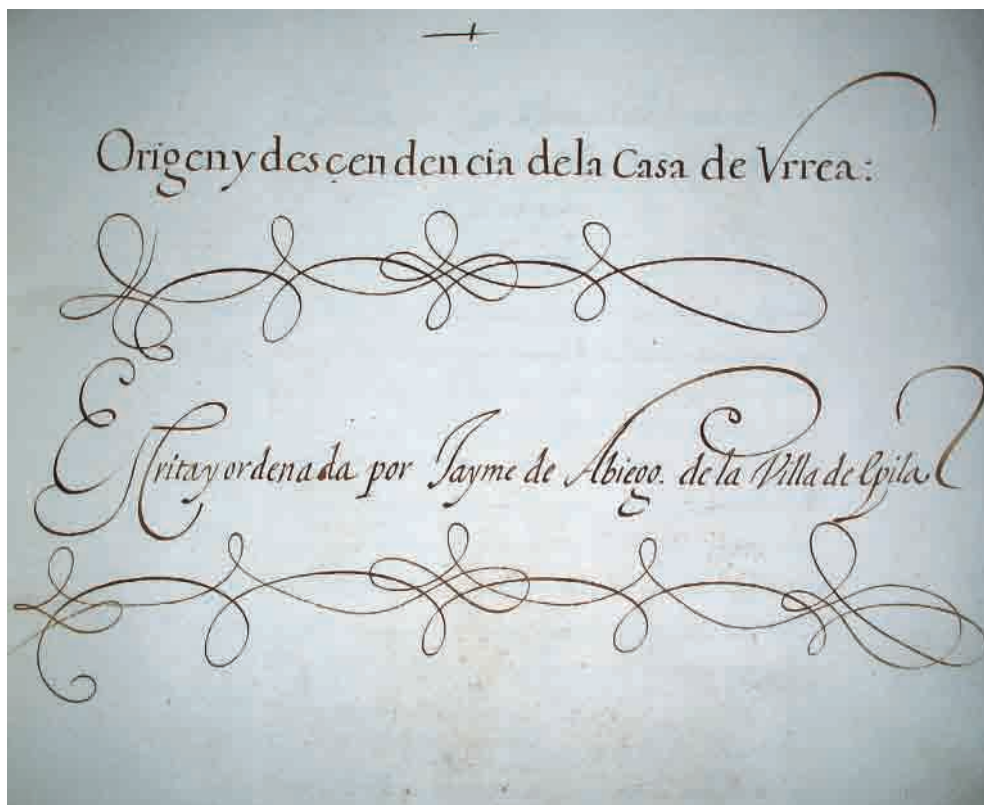 Origen y descendencia dela Casa de Vrrea:
Escrita y ordenada por Jayme de Abiego. de la Villa de Epila